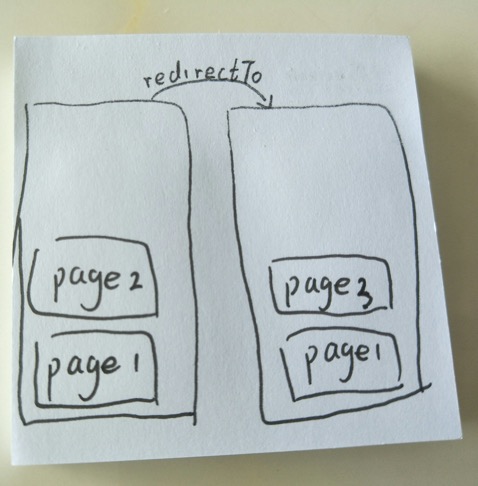 redirectTo
page 2
page 3
page 1
page 1